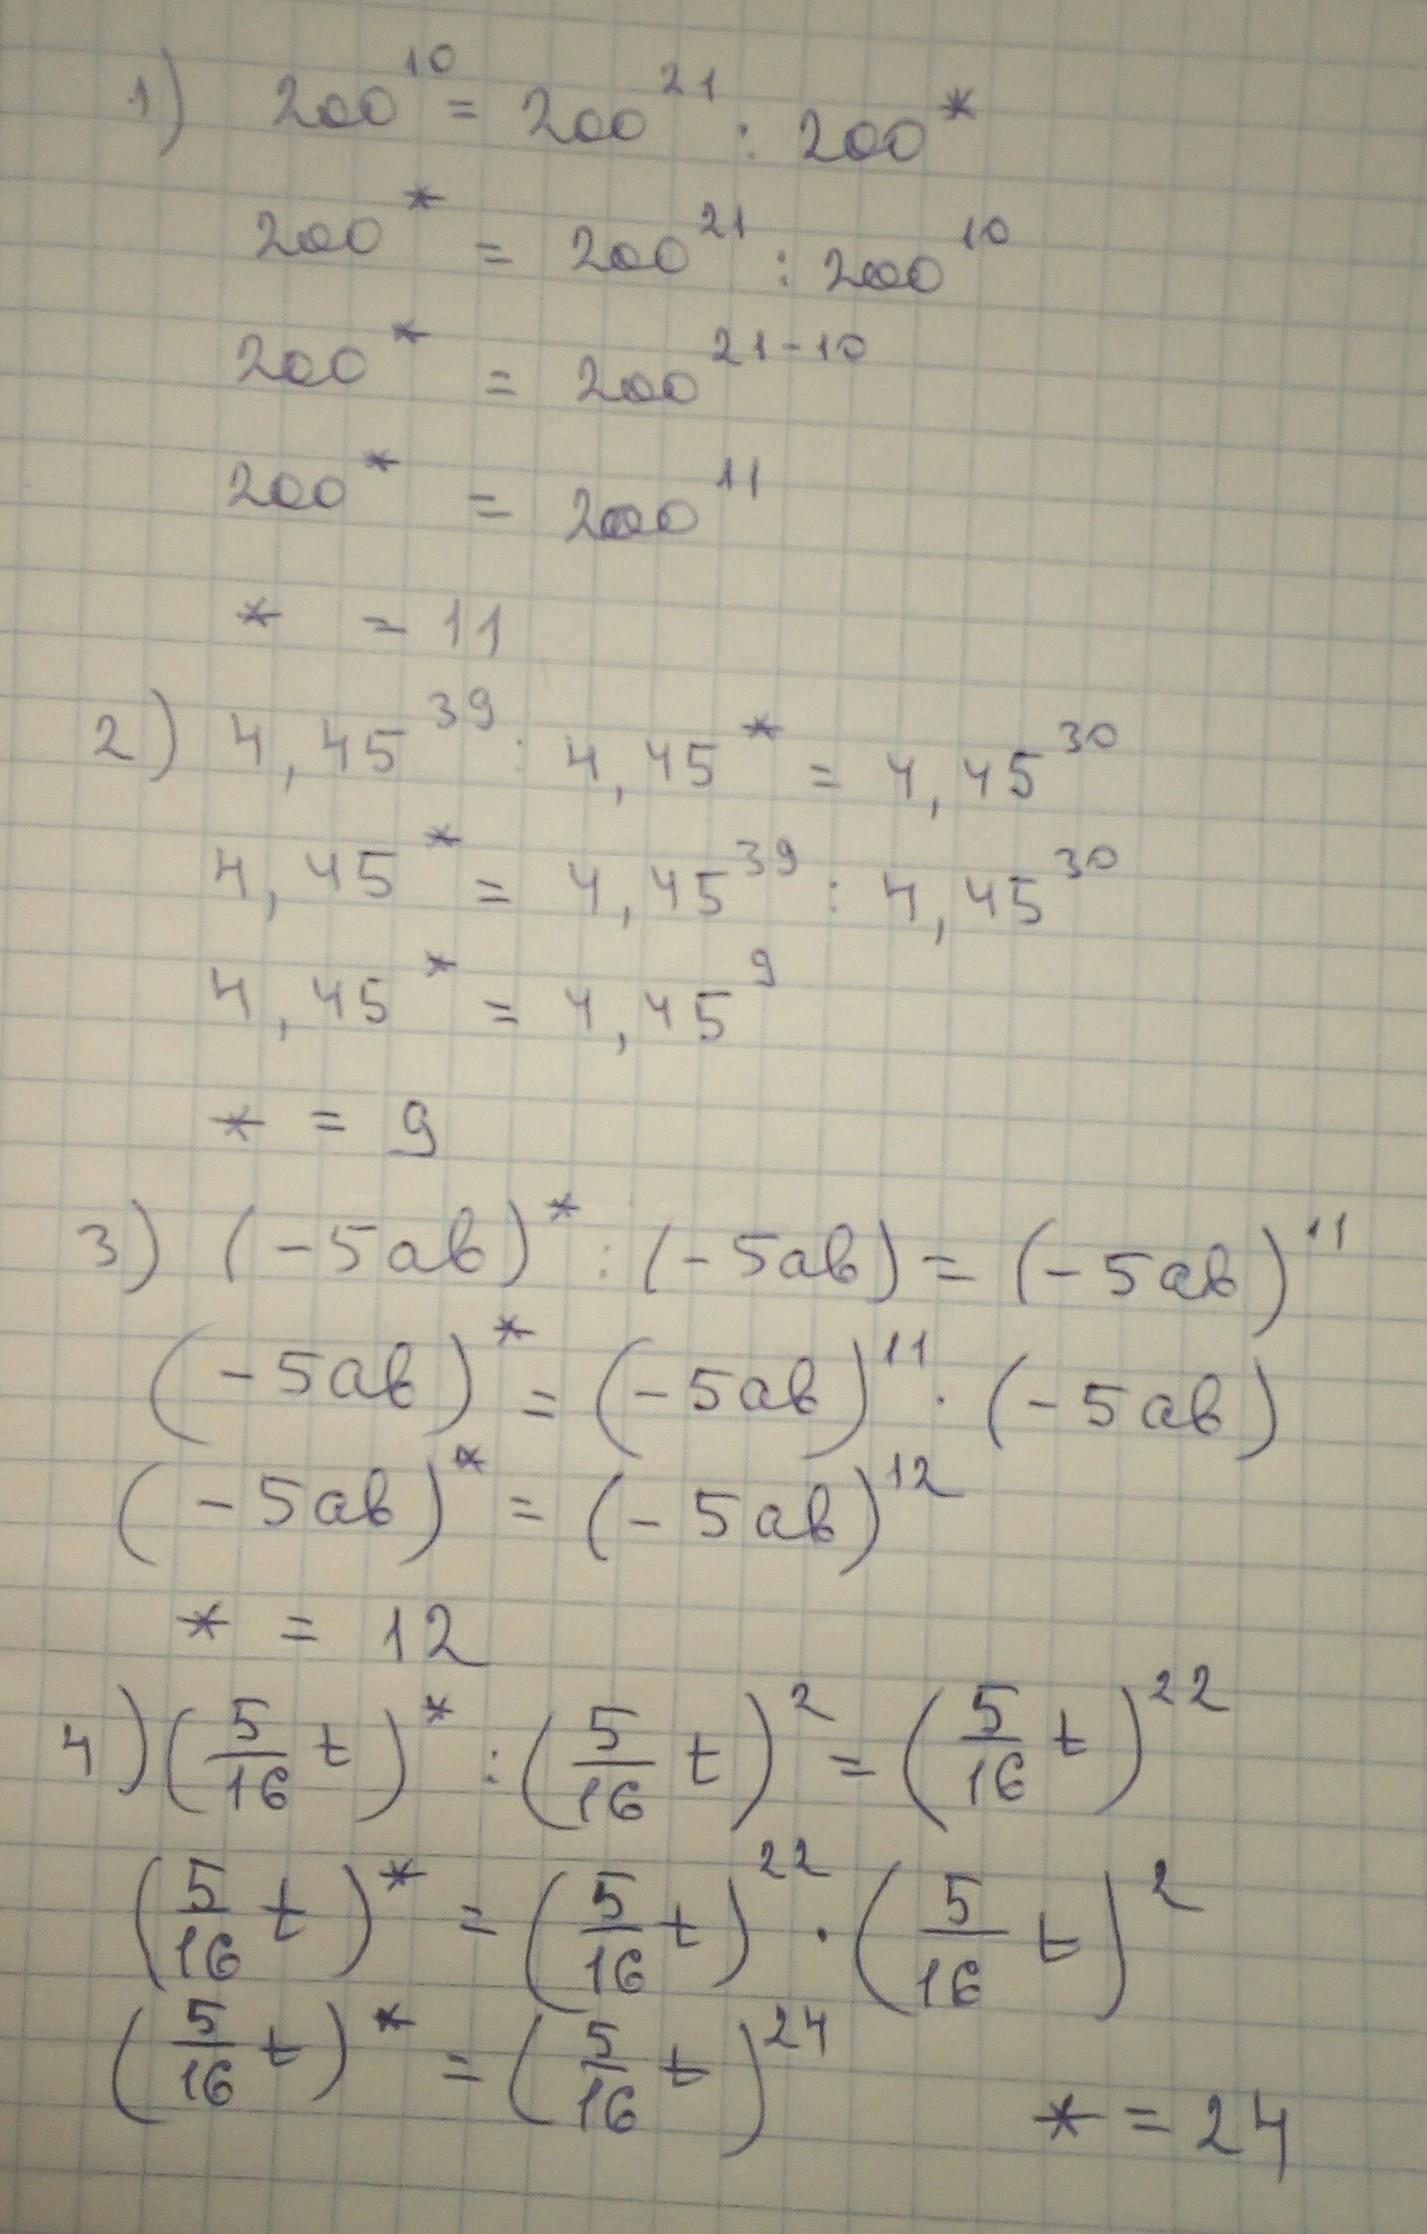 1) 200^10 = 200^21 : 200^*
200^* = 200^21 : 200^10
200^* = 200^21-10
200^* = 200^11
* = 11
2) 4,45^39 : 4,45^* = 4,45^30
4,45^* = 4,45^39 : 4,45^30
4,45^* = 4,45^9
* = 9
3) (-5ab)^* : (-5ab) = (-5ab)^11
(-5ab)^* = (-5ab)^11 · (-5ab)
(-5ab)^* = (-5ab)^12
* = 12
4) (5/16 t)^* : (5/16 t)^2 = (5/16 t)^22
(5/16 t)^* = (5/16 t)^22 · (5/16 t)^2
(5/16 t)^* = (5/16 t)^24 * = 24